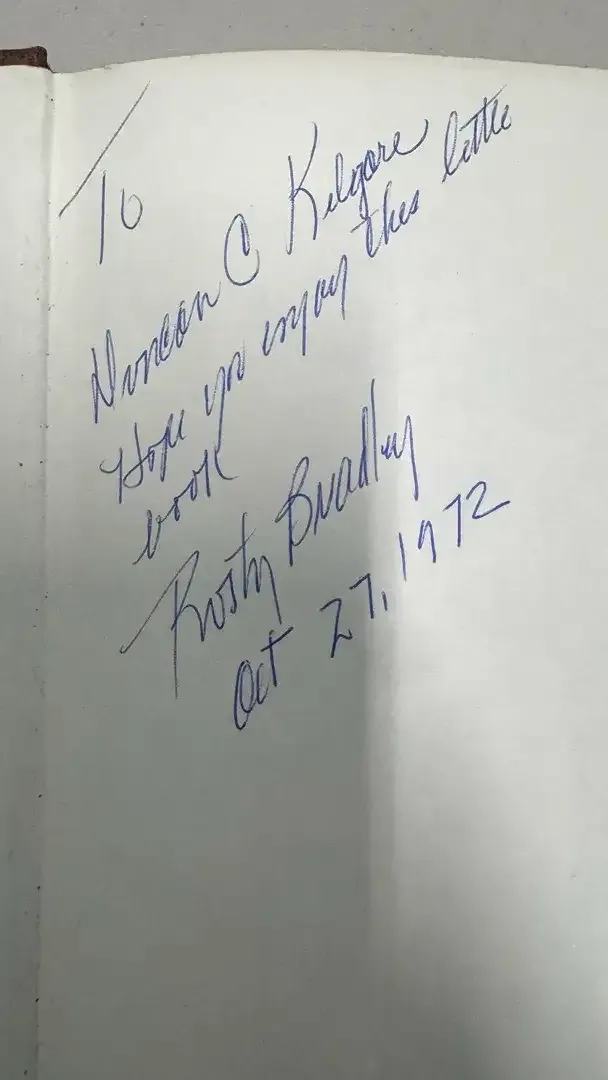 To
Duncan C Kilgore
Hope you enjoy this little
book
Rusty Bradley
Oct 27, 1972